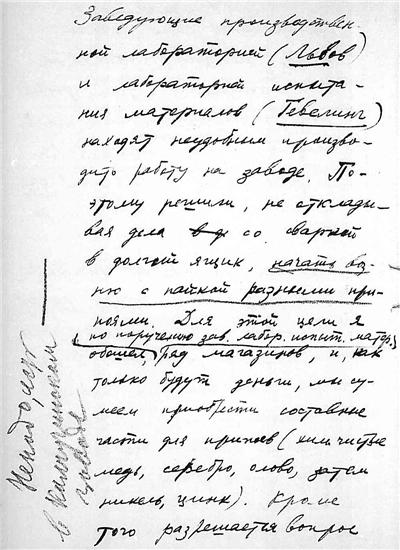 Заведующие производствен-
ной лабораторией (Львов)
и лабораторией испыта-
ния материалов (Гевелинг)
находят неудобным произво-
дить работу на заводе. По-
этому решили, не отклады-
вая дела со сваркой
в долгий ящик, начать во-
ню с пайкой разными при-
поями. Для этой цели я
(по поручению зав. лабор. испыт. матер.)
обошел ряд магазинов, и, как
только будут деньги, мы су-
меем приобрести составные
части для припоев (хим. чистые
медь, серебро, олово, затем
никель, цинк). Кроме
того разрешается вопрос
Неподоред
в Кольчугинском
заводе